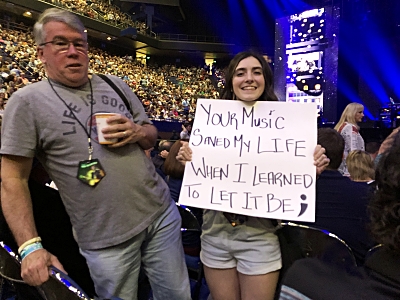 life is good
YOUR MUSIC
SAVED MY LIFE
WHEN I LEARNED
TO LET IT BE ;